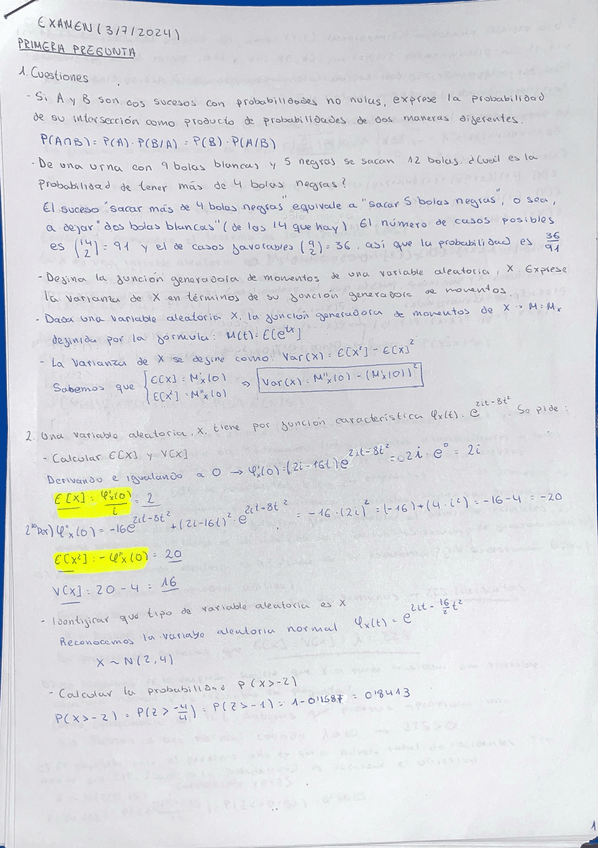 EXAMEN (3/7/2024)
PRIMERA PREGUNTA
1. Cuestiones
- Si A y B son dos sucesos con probabilidades no nulas, exprese la probabilidad
de su intersección como producto de probabilidades de dos maneras diferentes.
P(A∩B) = P(A) · P(B/A) = P(B) · P(A/B)
- De una urna con 9 bolas blancas y 5 negras se sacan 12 bolas. ¿Cuál es la
probabilidad de tener más de 4 bolas negras?
El suceso "sacar más de 4 bolas negras" equivale a "sacar 5 bolas negras", o sea,
a dejar "dos bolas blancas" (de los 14 que hay). El número de casos posibles
es (14 2) = 91 y el de casos favorables (9 2) = 36, así que la probabilidad es 36/91
- Defina la función generadora de momentos de una variable aleatoria, X. Exprese
la varianza de X en términos de su función generadora de momentos.
- Dada una variable aleatoria X, la función generadora de momentos de X → M = Mx
definida por la fórmula: M(t) = E[e^tx]
- La varianza de X se define como: Var(X) = E[X²] - E[X]²
Sabemos que { E[X] = M'x(0) E[X²] = M''x(0) ⇒ Var(X) = M''x(0) - (M'x(0))²
2. Una variable aleatoria, X, tiene por función característica φx(t) = e^2it-8t². Se pide:
- Calcular E[X] y V[X]
Derivando e igualando a 0 → φ'x(0) = (2i-16t) e^2it-8t² = 2i · e^0 = 2i
E[X] = φ'x(0)/i = 2
2ªDer) φ''x(0) = -16e^2it-8t² + (2i-16t)² · e^2it-8t² = -16 · (2i)² = (-16) + (4 · i²) = -16-4 = -20
E[X²] = -φ''x(0) = 20
V[X] = 20 - 4 = 16
- Identificar qué tipo de variable aleatoria es X
Reconocemos la variable aleatoria normal φx(t) = e^2it - 16/2 t²
X ~ N(2,4)
- Calcular la probabilidad P(X>-2)
P(X>-2) = P(Z > -4/4) = P(Z>-1) = 1-0'1587 = 0'8413
1